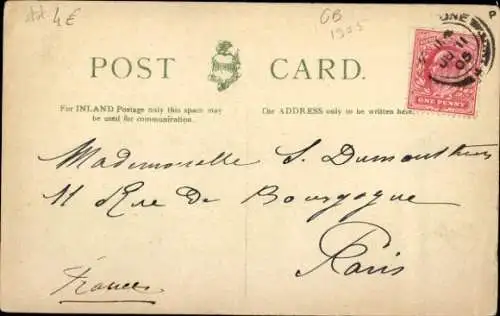 4€
GB
1905
POST CARD.
For INLAND Postage only this space may be used for communication.
The ADDRESS only to be written here.
ONE PENNY
JU 11
05
Mademoiselle S.
11 Rue de Bourgogne
Paris
France